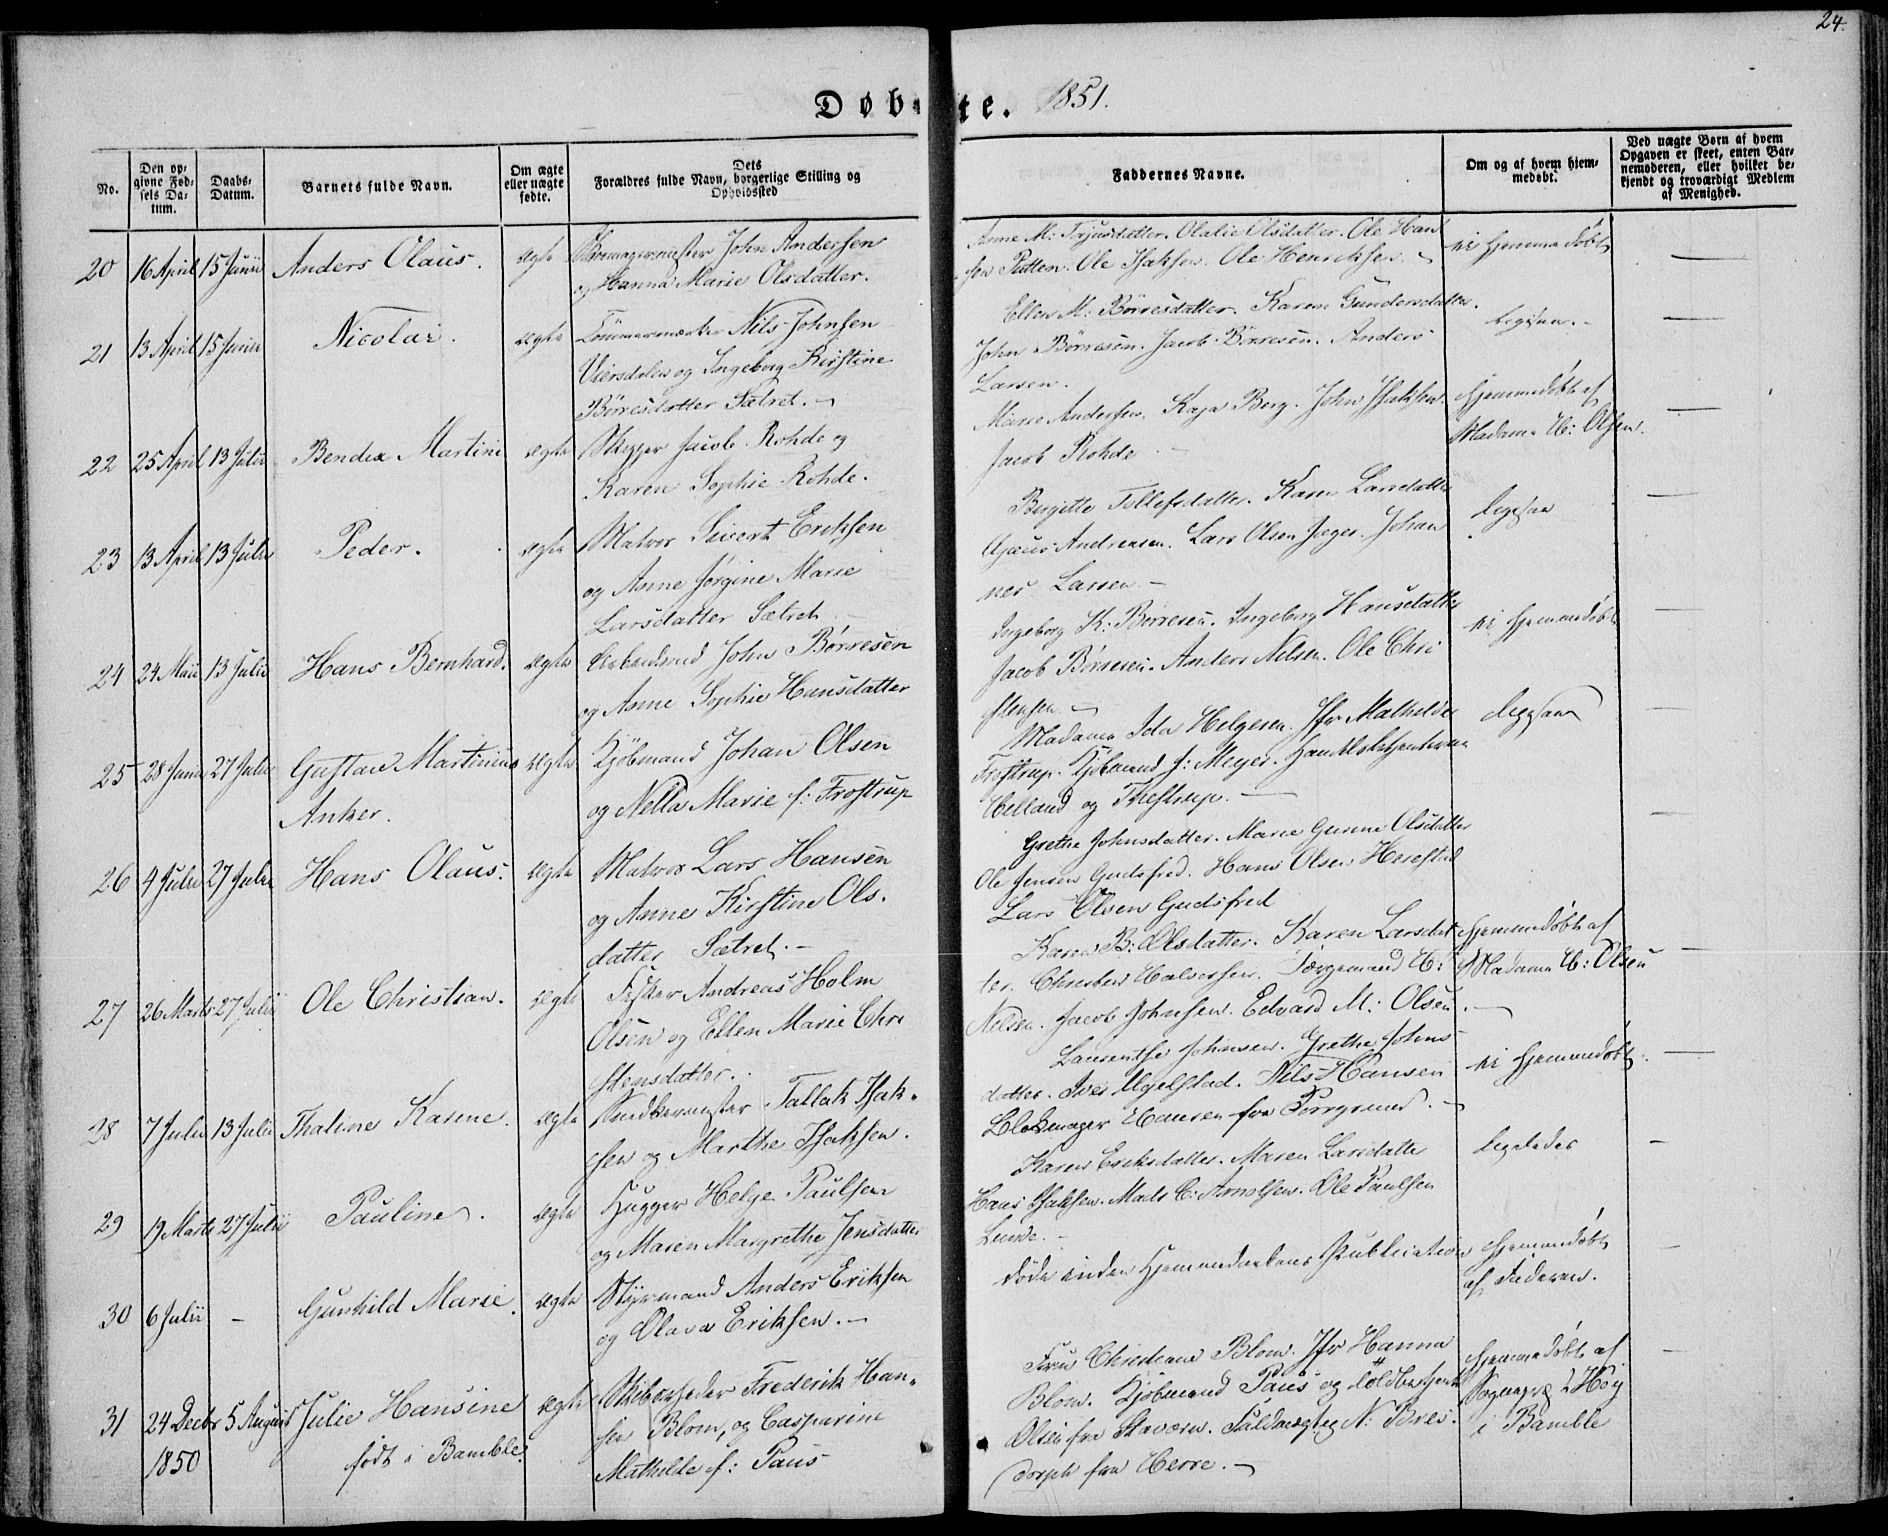 24.
Døbte. 1851.
No.
Den opgivne Fødsels Datum.
Daabs-Datum.
Barnets fulde Navn.
Om ægte eller uægte fødte.
Dets Forældres fulde Navn, borgerlige Stilling og Opholdssted
Faddernes Navne.
Om og af hvem hjemmedøbt.
Ved uægte Børn af hvem Opgaven er skeet, enten Barnemoderen, eller hvilket bekjendt og troværdigt Medlem af Menighed.
20 16 April 15 Junii Anders Olaus. ægte Skomagermester John Andersen
og Hanna Marie Olsdatter.
Anne M: Olalie Olsdatter. Ole Han
sen Ole Isaksen. Ole Henriksen
ei hjemmedøbt
21 13 April 15 Junii Nicolai. ægte Tømmermand Nils Johnsen
og Ingeborg Kirstine
Børresdatter Sætret.
Ellen M: Børresdatter. Karen Gundersdatter.
John Børresen. Jacob Børresen. Anders
Larsen.
ligesaa.
22 25 April 13 Julii Bendix Martin ægte Skipper Jacob Rohde og
Karen Sophie Rohde.
Marie Andersen. Kaja Berg. John Isaksen
Jacob Rohde
hjemmedøbt af
Madame U: Olsen.
23 13 April 13 Julii Peder. ægte Matros Sivert Eriksen
og Anne Jørgine Marie
Larsdatter Sætret
Birgitte Tollefsdatter. Karen Larsdatter
Andreasen. Lars Olsen Jæger. Johan
nes Larsen
ligesaa
24 24 Mai 13 Julii Hans Bernhard. ægte Arbeidsmd John Børresen
og Anne Sophie Hansdatter
Ingeborg K: Børresen. Ingeborg Hansdatter
Jacob Børresen. Anders Nilsen. Ole Chri
stensen
ei hjemmedøbt
25 28 Junii 27 Julii Gustav Martinius
Anker.
ægte Kjøbmand Johan Olsen
og Nella Marie f: Frostrup
Madame Ida Helgesen. Jfr Mathilde
Frostrup. Kjøbmand J: Meyer. Handelsbetjenterne
Helland og Thestrup.
ligesaa
26 4 Julii 27 Julii Hans Olaus. ægte Matros Lars Hansen
og Anne Kirstine Ols-
datter Sætret.
Grethe Johnsdatter. Marie Gurine Olsdatter
Ole Jensen Gudsfred. Hans Olsen
Lars Olsen Gudsfred
27 26 Marts 27 Julii Ole Christian. ægte Fisker Andreas Holm
Olsen og Ellen Marie Chri
stensdatter.
Karen B: Olsdatter. Karen Larsdat
ter. Christen Halvorsen. Færgemand U:
Nilsen. Jacob Johnsen. Edvard M: Olsen.
hjemmedøbt af
Madame U: Olsen
28 7 Julii 13 Julii Thaline Karine. ægte Smedkermester Tallak Isak-
sen og Marthe Isaksen.
Laurentse Johnsen. Grethe Johns
datter. Iver Ugelstad. Nils Hansen
Blokmager Hansen fra Porsgrund.
ei hjemmedøbt.
29 19 Marts 27 Julii Pauline. ægte Hugger Helge Paulsen
og Maren Margrethe Jensdatter
Karen Eriksdatter. Maren Larsdatter
Hans Isaksen. Mads C: Arnoldsen. Ole Paulsen
Lunde.
ligeledes
30 6 Julii - Gunhild Marie. ægte Styrmand Anders Eriksen
og Olava Eriksen.
døde inden Hjemmedaabens Publication
hjemmedøbt
af Faderen.
31 24 Decbr 1850 5 August Julie Hansine
født i Bamble.
ægte Skibsreder Frederik Han-
sen Blom, og Casparine
Mathilde f: Paus
Fru Christiane Blom. Jfr Hanna
Blom. Kjøbmand Paus og Toldbetjent
Olsen fra Stavern. Fuldmægtig N: Bres-
dorph fra Herre.
hjemmedøbt af
Sognepr. Høy
i Bamble